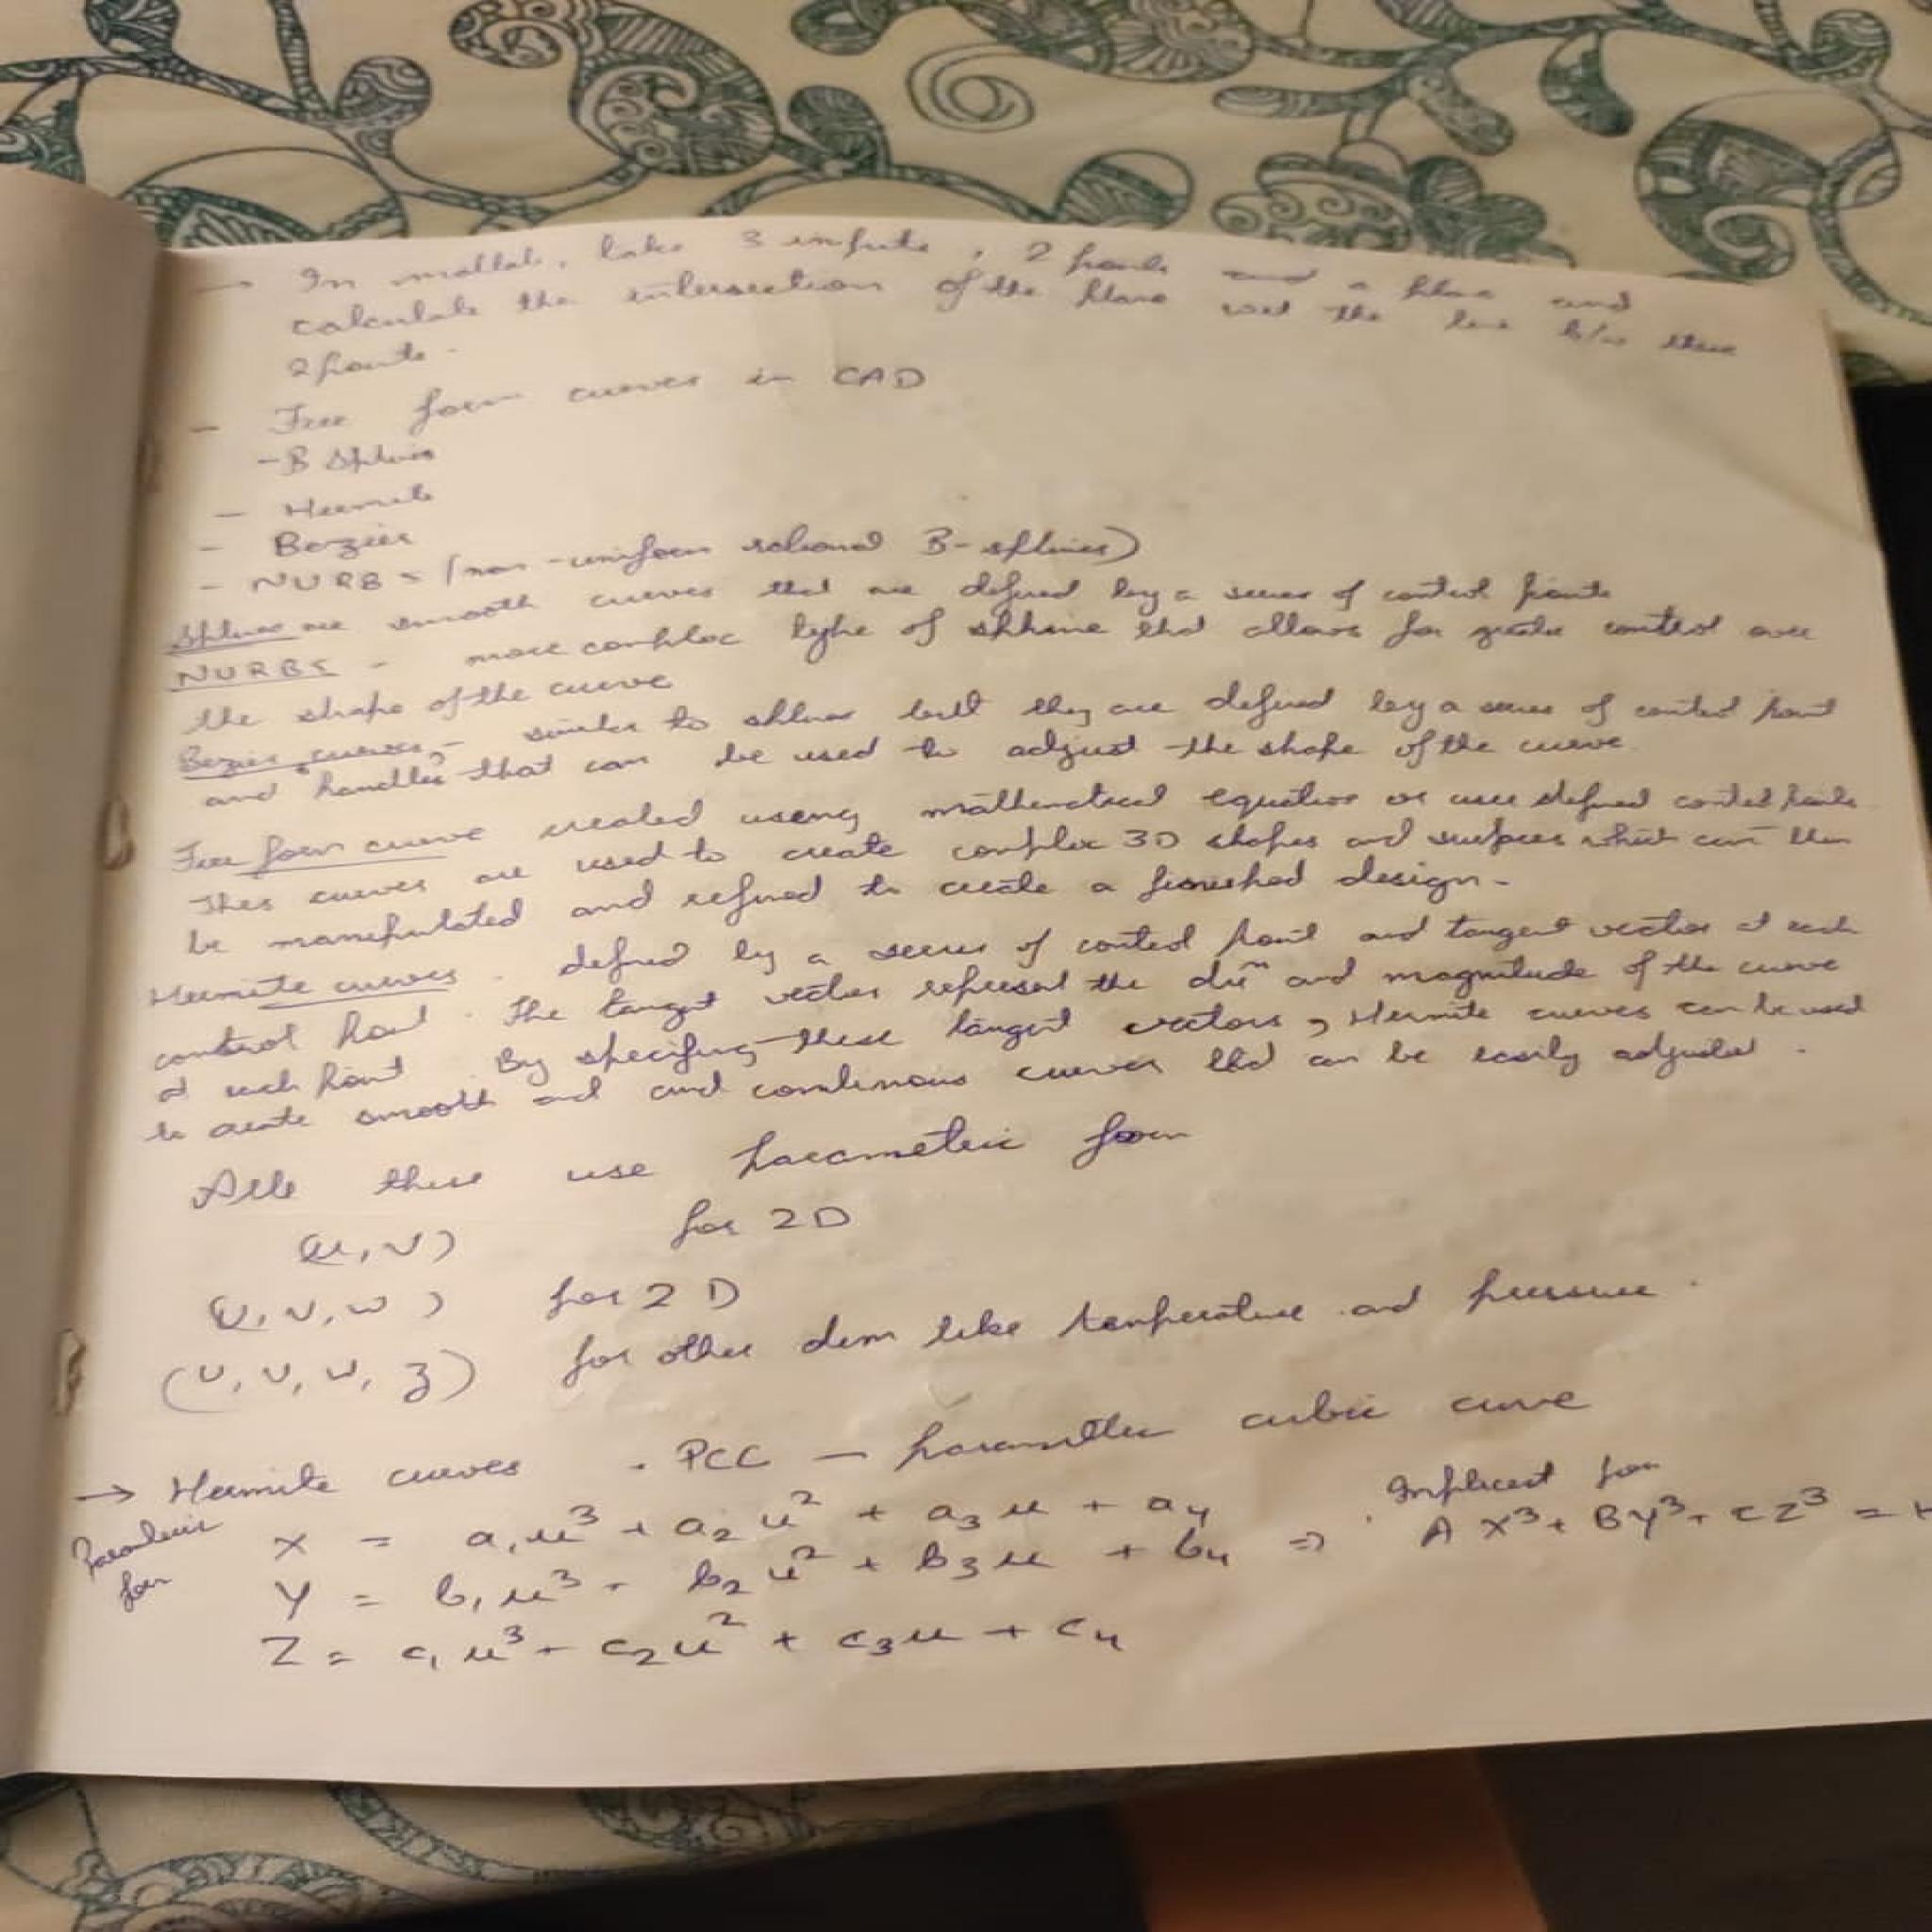 → In matlab, take 3 inputs, 2 points and a plane and
calculate the intersection of the plane wrt the line b/w these
2 points.
- Free form curves in CAD
- B Splines
- Hermite
- Bezier
- NURBS (non-uniform rational B-splines)
Splines are smooth curves that are defined by a series of control points
NURBS - more complex type of spline that allows for greater control over
the shape of the curve
Bezier curves - similar to splines but they are defined by a series of control point
and "handles" that can be used to adjust the shape of the curve
Free form curve created using mathematical equations or user defined control points
These curves are used to create complex 3D shapes and surfaces which can then
be manipulated and refined to create a finished design.
Hermite curves. defined by a series of control point and tangent vector at each
control point. The tangent vectors represent the dirn and magnitude of the curve
at each point. By specifing these tangent vectors, Hermite curves can be used
to create smooth and and continous curves that can be easily adjusted.
All these use parametric form
(u, v) for 2D
(u, v, w) for 2D
(u, v, w, z) for other dim like temperature and pressure.
→ Hermite curves . PCC - parametric cubic curve
Implicit form
X = a₁u³ + a₂u² + a₃u + a₄
Y = b₁u³ + b₂u² + b₃u + b₄ ⇒ AX³ + BY³ + CZ³ =
Z = c₁u³ + c₂u² + c₃u + c₄